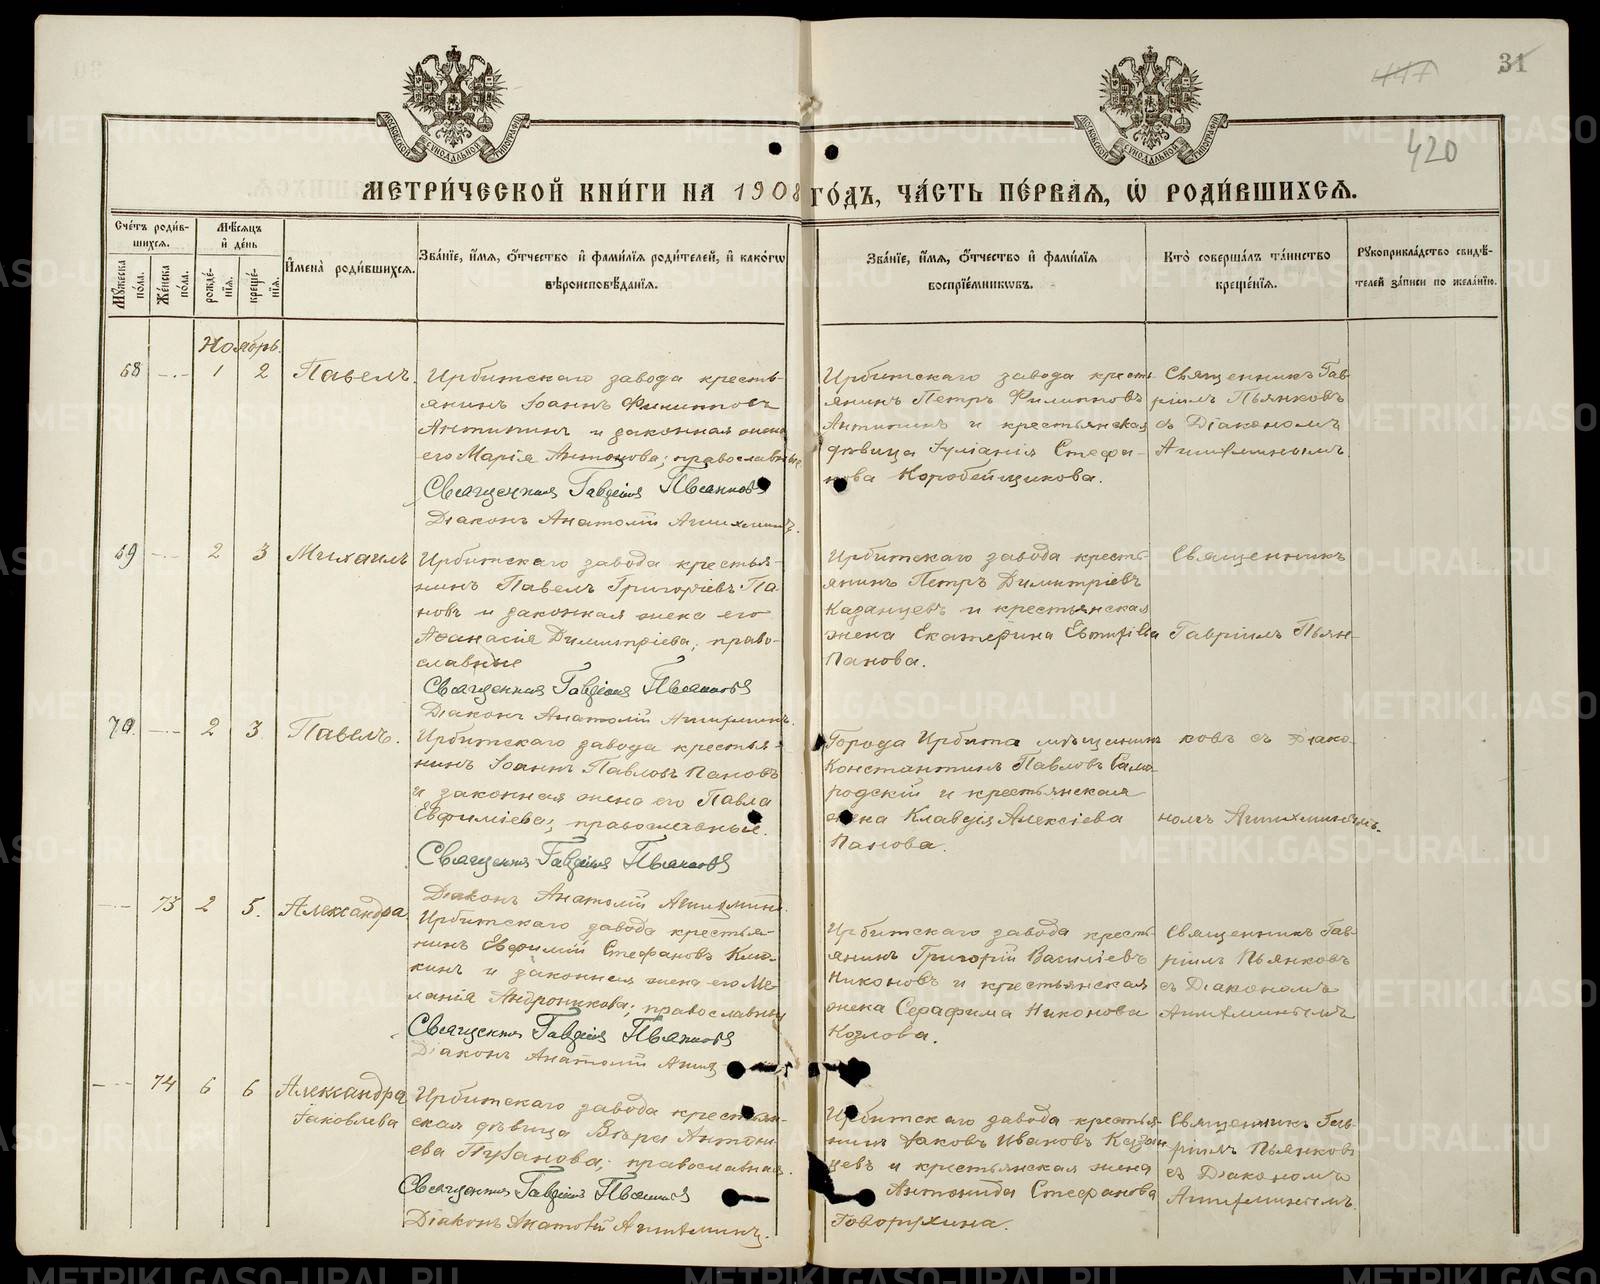 31
447
420
МЕТРИ́ЧЕСКОЙ КНИ́ГИ НА 1908 ГО́ДЪ, ЧА́СТЬ ПЕ́РВАЯ, Ѡ҆ РОДИ́ВШИХСЯ.
МОСКОВСКОЙ СѴНОДАЛЬНОЙ ТИПОГРАФІИ
МОСКОВСКОЙ СѴНОДАЛЬНОЙ ТИПОГРАФІИ
Сче́тъ роди́в-
шихся.
Му́жеска по́ла.
Же́нска по́ла.
Мѣ́сяцъ
и҆ де́нь
рожде́-
нїя.
креще́-
нїя.
И҆мена̀ роди́вшихся.
Зва́нїе, и҆́мя, ѻ҆́тчество и҆ фами́лїя роди́телей, и҆ како́гѡ
вѣроисповѣ́данїя.
Зва́нїе, и҆́мя, ѻ҆́тчество и҆ фами́лїя
воспрїе́мникѡвъ.
Кто̀ соверша́лъ та́инство
креще́нїя.
Рꙋкоприкла́дство свидѣ́-
телей за́писи по жела́нїю.
Ноябрь.
68 — 1 2 Павелъ.
Ирбитскаго завода кресть-
янинъ Іоаннъ Филипповъ
Антипинъ и законная жена
его Марія Антонова; православные
Священникъ Гавріилъ Пьянковъ
Діаконъ Анатолій
Ирбитскаго завода кресть-
янинъ Петръ Филипповъ
Антипинъ и крестьянская
дѣвица Іуліанія Стефа-
нова Коробейщикова.
Священникъ Гав-
ріилъ Пьянковъ
съ Діакономъ
69 — 2 3 Михаилъ
Ирбитскаго завода крестья-
нинъ Павелъ Григоріевъ Па-
новъ и законная жена его
Аѳанасія Димитріева, право-
славные
Священникъ Гавріилъ Пьянковъ
Діаконъ Анатолій
Ирбитскаго завода кресть-
янинъ Петръ Димитріевъ
Казанцевъ и крестьянская
жена Екатерина
Панова.
Священникъ
Гавріилъ Пьян-
70. — 2 3 Павелъ.
Ирбитскаго завода крестья-
нинъ Іоаннъ Павловъ Пановъ
и законная жена его Павла
Евфиміева; православные.
Священникъ Гавріилъ Пьянковъ
Діаконъ Анатолій
Города Ирбита мѣщанинъ
Константинъ Павловъ
родскій и крестьянская
жена Клавдія Алексіева
Панова.
ковъ съ Діако-
номъ
— 73 2 5. Александра.
Ирбитскаго завода крестья-
нинъ Евфимій Стефановъ
и законная жена его Ме-
ланія Андроникова; православные
Священникъ Гавріилъ Пьянковъ
Діаконъ Анатолій
Ирбитскаго завода кресть-
янинъ Григорій Василіевъ
Никоновъ и крестьянская
жена Серафима Никонова
Козлова.
Священникъ Гав-
ріилъ Пьянковъ
съ Діакономъ
— 74 6 6 Александра
Іаковлева
Ирбитскаго завода крестьян-
ская дѣвица Вѣра Антони-
ева православная.
Священникъ Гавріилъ Пьянковъ
Діаконъ Анатолій
Ирбитскаго завода крестья-
нинъ Іаковъ Ивановъ Казан-
цевъ и крестьянская жена
Антонида Стефанова
Говорухина.
Священникъ Гав-
ріилъ Пьянковъ
съ Діакономъ
METRIKI.GASO-URAL.RU